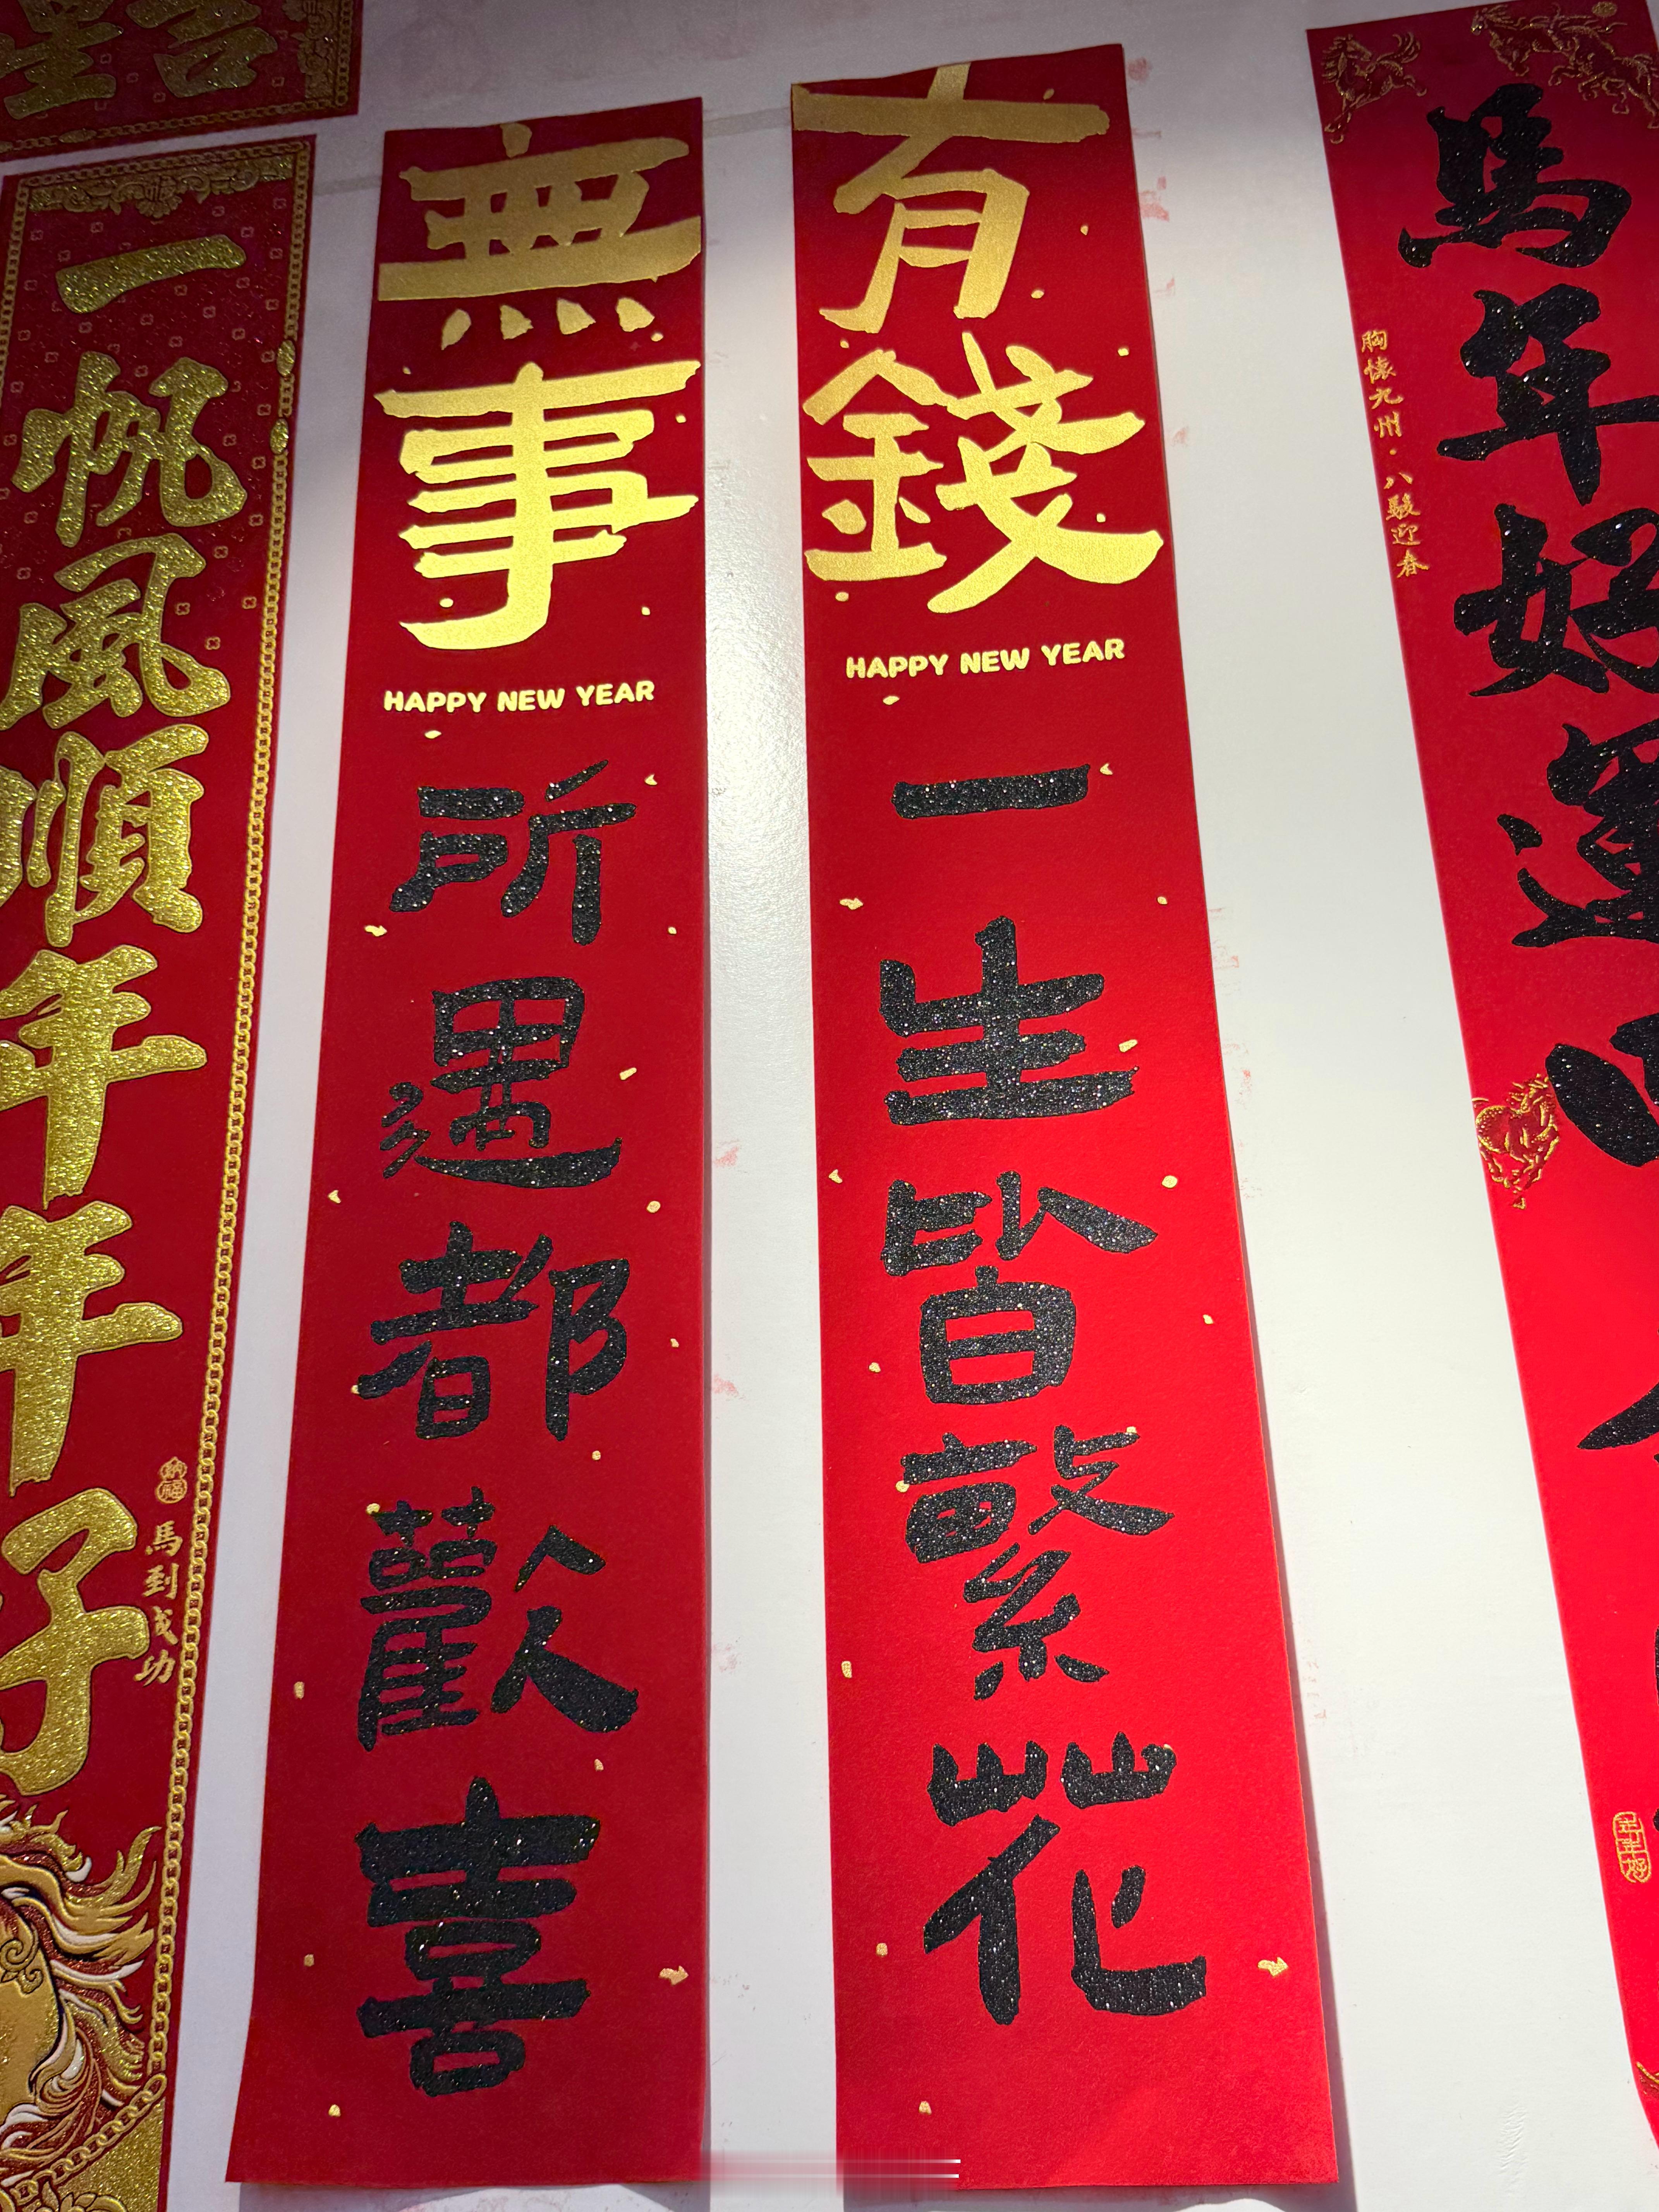 吉星
馬年好運
胸懷九州·八駿迎春
年年好
有錢
HAPPY NEW YEAR
一生皆繁花
無事
HAPPY NEW YEAR
所遇都歡喜
一帆風順年年好
納福
馬到成功